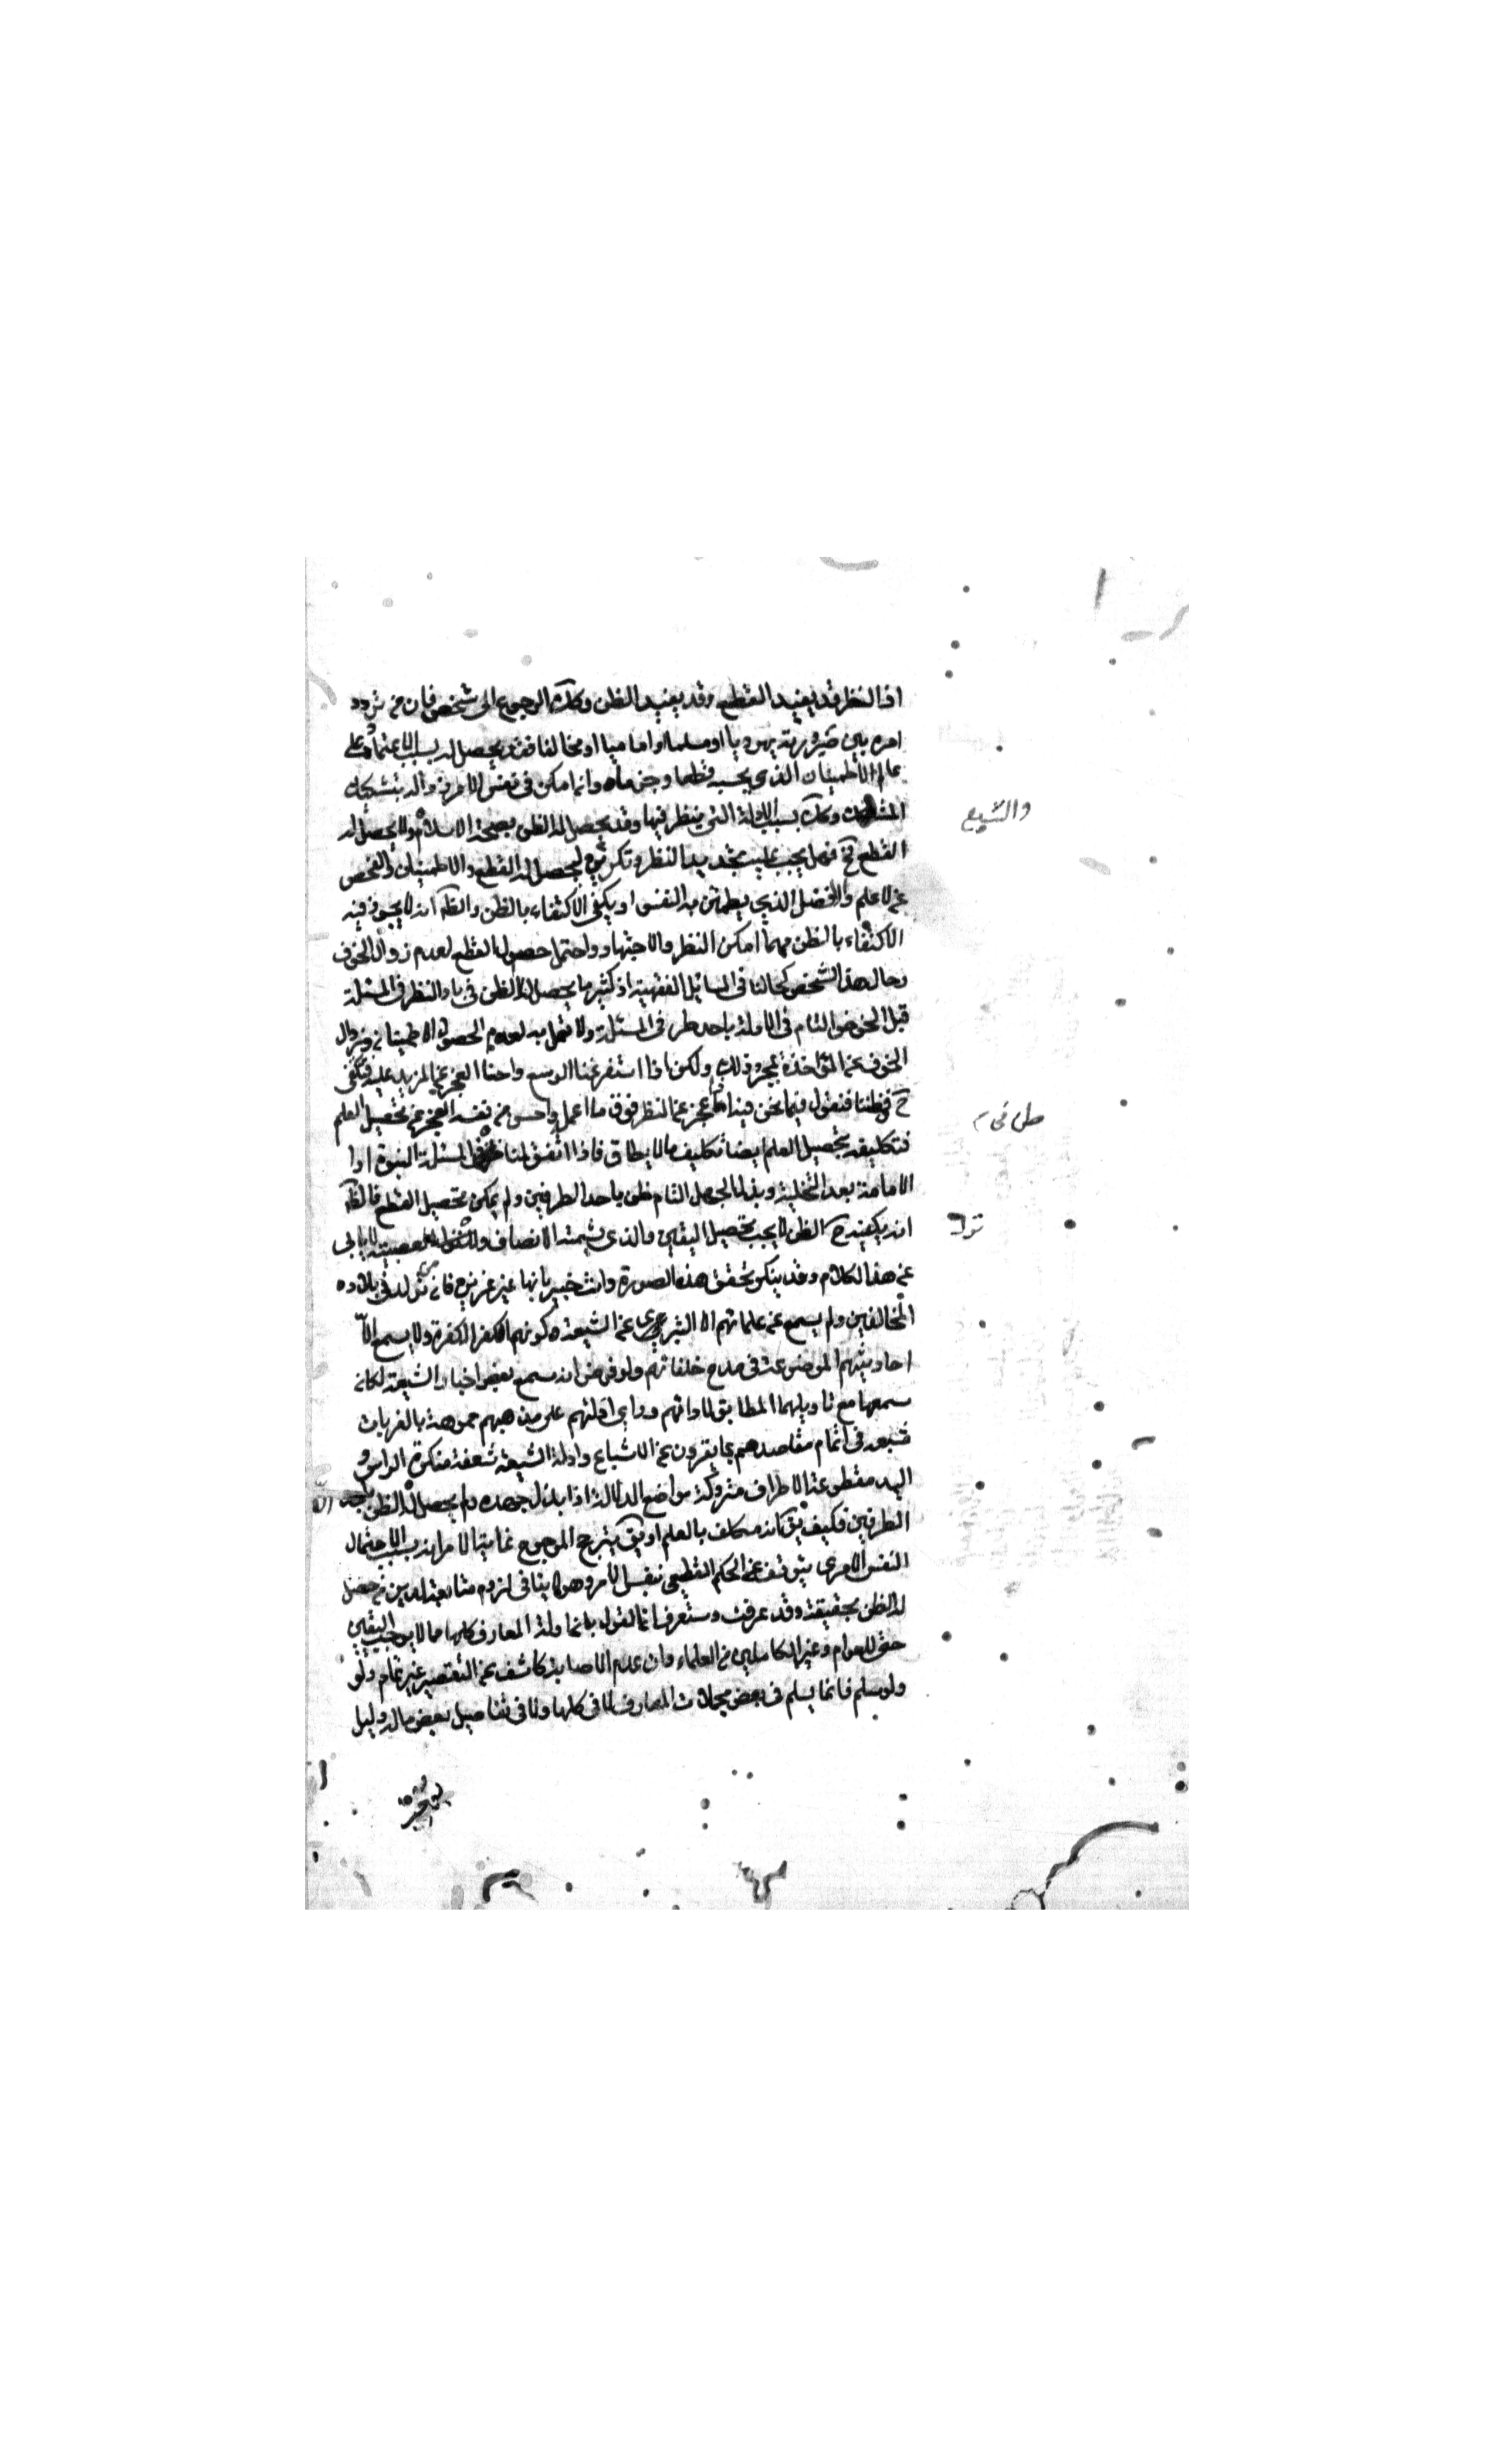 اذ النظر قد يفيد القطع وقد يفيد الظن وكك الرجوع الى شخص فان من تردد
امره بين صيرورته يهوديا او مسلما او اماميا او مخالفا فقد يحصل له بسبب الاعتماد على
عالم الاطمينان الذي يحسبه قطعا وجزما وانما مكن في نفس الامر زواله بتشكيك
المشكك وكك بسبب الادلة التي ينظر فيها وقد يحصل له الظن بصحة الاسلام ولا يحصل له
والتشيع
القطع فح فهل يجب عليه تجديد النظر وتكريره ليحصل له القطع والاطمينان والفحص
عن الاعلم والافضل الذي يطمئن به النفس او يكفي الاكتفاء بالظن والظ انه لا يجوز فيه
الاكتفاء بالظن مهما امكن النظر والاجتهاد واحتمل حصول القطع لعدم زوال الخوف
وحال هذا الشخص كحالنا في المسائل الفقهية اذ كثيرا ما يحصل لنا الظن في بادي النظر في المسئلة
قبل الخوض التام في الادلة باحد طرفي المسئلة ولا نعمل به لعدم الحصول الاطمينان وزوال
الخوف عن المؤاخذة بمجرد ذلك ولكن اذا استفرغنا الوسع واحسنا العجز عن المزيد عليه فنكتفي
ح بظننا فنقول فيما نحن فيه اذا عجز عن النظر فوق ما اعمل واحس من نفسه العجز عن تحصيل العلم
فتكليفه بتحصيل العلم ايضا تكليف بما لا يطاق فاذا اتفق لنا في المسئلة النبوة او
الامامة بعد التخلية وبذل الجهد التام ظن باحد الطرفين ولم يمكن تحصيل القطع فالظ
انه يكفيه ح الظن لا يجب تحصيل اليقين والذي شيمته الانصاف
عن هذا الكلام وقد ينكر تحقق هذه الصورة وانت خبير بانها غير عزيزة فان من تولد في بلاد
المخالفين ولم يسمع من علمائهم الا التبري عن الشيعة وكونهم اكفر الكفرة ولا يسمع الا
احاديثهم الموضوعة في مدح خلفائهم ولو فرض انه سمع بعض اخبار الشيعة لكان
سمعها مع تاويلها المطابق لارائهم وراى ادلتهم على مذهبهم مموهة
في اتمام مقاصدهم بما يقرون من الاشباع وادلة الشيعة منكرة الراس و
اليد مقطوعة الاطراف متروكة مواضع الدلالة اذا بذل جهده ولم يحصل له الظن باحد
الطرفين فكيف يق بانه مكلف بالعلم او يق بترجيح المرجوح غاية الامر انه بسبب الاحتمال
النفس الامري يتوقف عن الحكم القطعي بنفس الامر وهو لا ينافي لزوم متابعة الدين من حصل
له الظن بحقيقته وقد عرفت وستعرف ان القول بان ادلة المعارف كلها مما لا يوجب اليقين
حتى للعوام وغير الكاملين من العلماء وان عدم الاصابة كاشف عن التقصير غير تمام ولو
ولو سلم فانما يسلم في بعض مجملات المعارف لا في كلها ولا في تفاصيل بعض ماله دليل